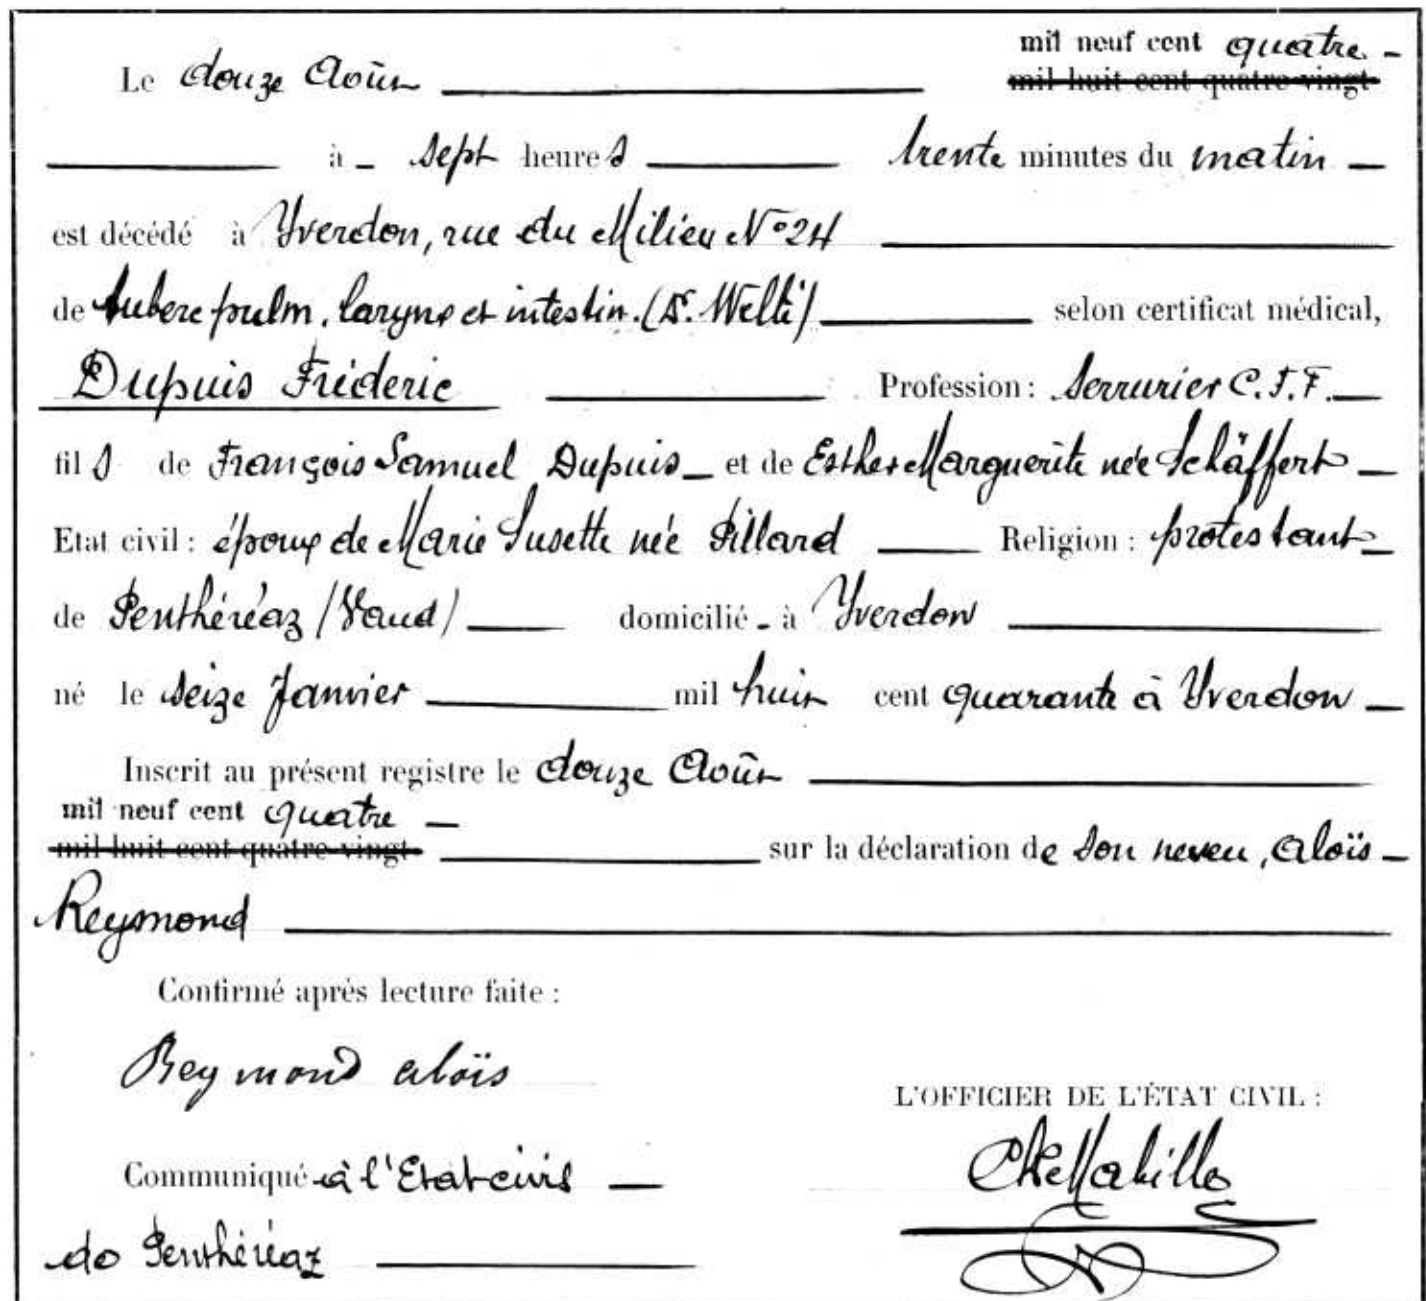 mil neuf cent quatre -
Le douze Août mil huit cent quatre-vingt
à - sept heures trente minutes du matin -
est décédé à Yverdon, rue du Milieu N° 24
de tuberc pulm. larynx et intestin. (Dr. Welti) selon certificat médical,
Dupuis Fréderic Profession : Serrurier C.F.F.
fils de François Samuel Dupuis - et de Esther Marguerite née Schäffert -
Etat civil : époux de Marie Susette née Pillard Religion : protestant -
de Penthéréaz (Vaud) domicilié - à Yverdon
né le seize Janvier mil huit cent quarante à Yverdon -
Inscrit au présent registre le douze Août
mil neuf cent quatre -
mil huit cent quatre-vingt sur la déclaration de son neveu, Aloïs -
Reymond
Confirmé après lecture faite :
Reymond aloïs
L'OFFICIER DE L'ÉTAT CIVIL :
Communiqué à l'Etat-civil -
de Penthéréaz